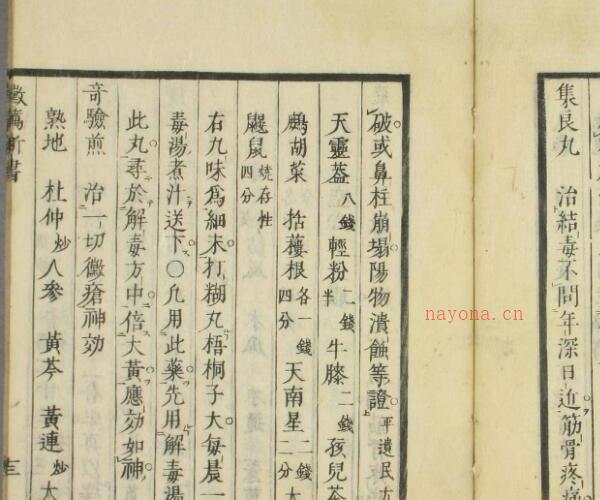 集良丸 治結毒不問年深日近筋骨疼痛
破或鼻柱崩塌陽物潰蝕等證 平遠民方
天靈蓋 八錢 輕粉 二錢半 牛膝 二錢 孩兒茶
鷓胡菜 括蔞根 各一錢四分 天南星 二錢二分 大
鼴鼠 燒存性四分
右九味為細末打糊丸梧桐子大每晨一
毒湯煮汁送下〇凡用此藥先用解毒湯
此丸尋於解毒方中倍大黃應効如神
奇驗煎 治一切黴瘡神効
熟地 杜仲 炒 人參 黃芩 黃連 炒 大
黴薦新書
三
nayona.cn